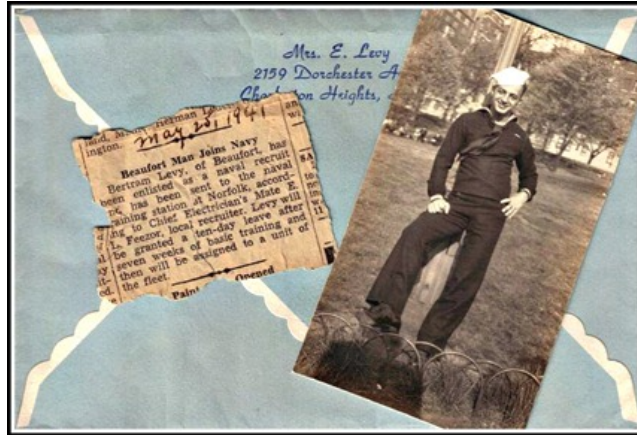 Mrs. E. Levy
2159 Dorchester A
Charleston Heights,
ington.
May 25, 1941
Beaufort Man Joins Navy
Bertram Levy, of Beaufort, has
been enlisted as a naval recruit
has been sent to the naval
raining station at Norfolk, accord-
ng to Chief Electrician's Mate E.
L. Feezor, local recruiter. Levy will
be granted a ten-day leave after
seven weeks of basic training and
then will be assigned to a unit of
the fleet.
Opened